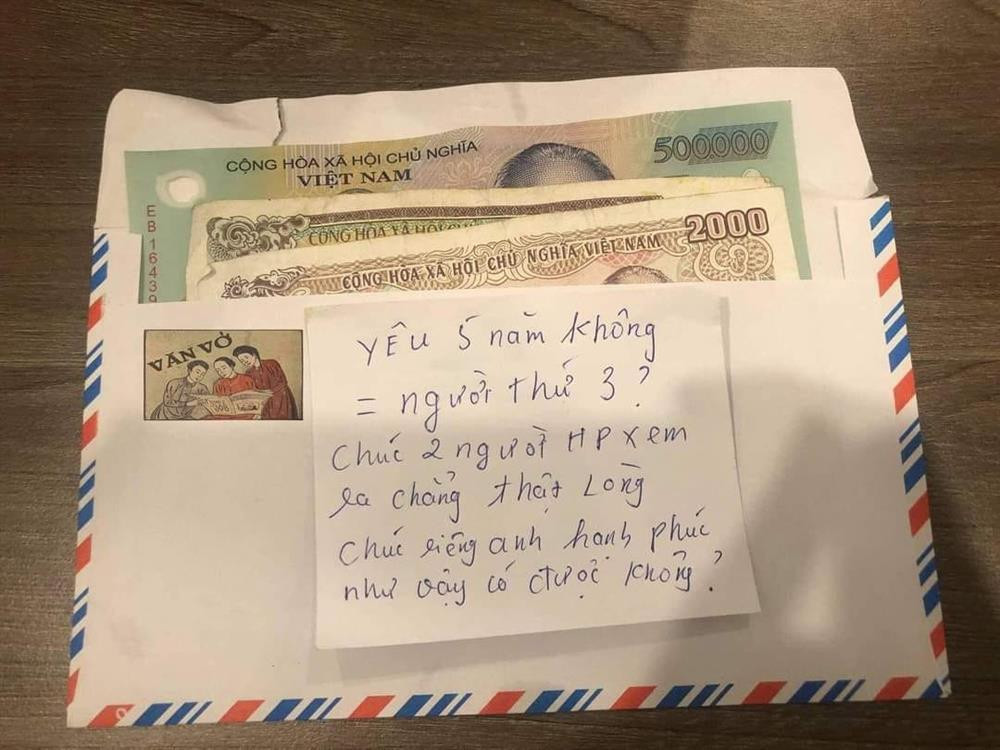 CỘNG HÒA XÃ HỘI CHỦ NGHĨA
VIỆT NAM
500.000
EB 16439
CỘNG HÒA XÃ HỘI CHỦ
2000
CỘNG HÒA XÃ HỘI CHỦ NGHĨA VIỆT NAM
VĂN VỞ
YÊU 5 năm không
= người thứ 3 ?
Chúc 2 người HP xem
ra chẳng thật Lòng
Chúc riêng anh hạnh phúc
như vậy có được không?